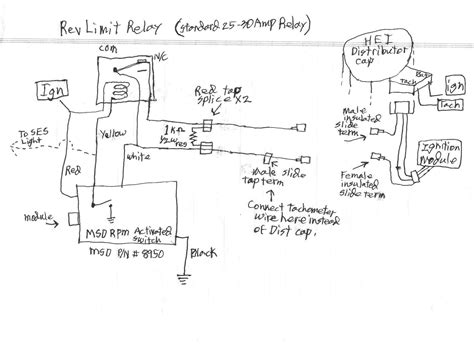 Rev Limit Relay (standard 25-30 Amp Relay)
com
N/C
Ign
Red tap
splice x2
1K
1/2W res
To SES
Light
Yellow
white
Red
male slide
tap term
Connect tachometer
wire here instead
of Dist cap.
module
MSD Rpm Activated
switch
MSD P/N # 8950
Black
HEI
Distributor
cap
Bat
Tach
ign
Tach
male
insulated
slide
term
Female
insulated
slide
term
Ignition
Module